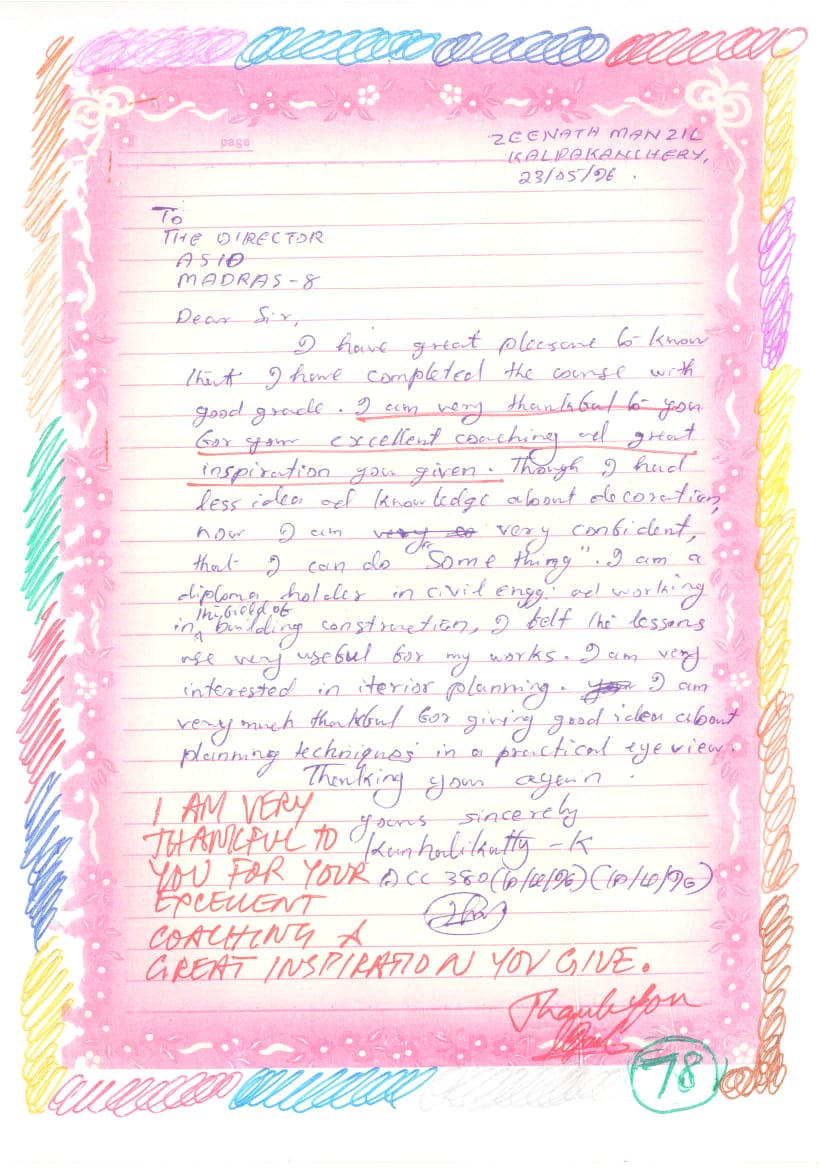 page
ZEENATH MANZIL
KALPAKANCHERY,
23/05/96.
To
THE DIRECTOR
ASID
MADRAS-8
Dear Sir,
I have great pleasure to know
that I have completed the course with
good grade. I am very thankful to you
for your excellent coaching and great
inspiration you given. Though I had
less idea and knowledge about decoration,
now I am very confident,
that I can do "Some thing". I am a
diploma holder in civil engg. and working
the field of
in building construction, I felt the lessons
are very useful for my works. I am very
interested in iterior planning. I am
very much thankful for giving good idea about
planning techniques in a practical eye view.
Thanking your again.
yours sincerely
Kunhalikutty - K
ACC 380 (10/4/96) (10/4/96)
I AM VERY
THANKFUL TO
YOU FOR YOUR
EXCELLENT
COACHING &
GREAT INSPIRATION YOU GIVE.
Thank you
78